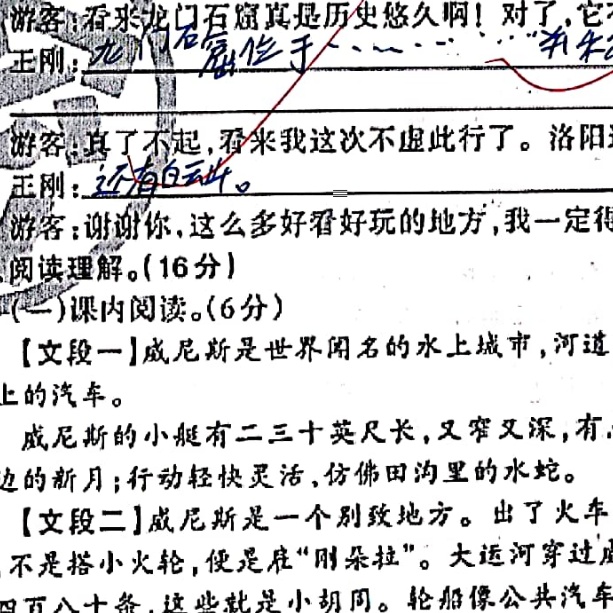 游客:看来龙门石窟真是历史悠久啊!对了,它
正刚:龙门石窟位于
游客:真了不起,看来我这次不虚此行了。洛阳
正刚:还有白云山。
游客:谢谢你,这么多好看好玩的地方,我一定得
阅读理解。(16分)
(一)课内阅读。(6分)
【文段一】威尼斯是世界闻名的水上城市,河道
上的汽车。
威尼斯的小艇有二三十英尺长,又窄又深,有
边的新月;行动轻快灵活,仿佛田沟里的水蛇。
【文段二】威尼斯是一个别致地方。出了火车
不是搭小火轮,便是雇“刚朵拉”。大运河穿过威
四百八十条,这些就是小胡同。轮船像公共汽车